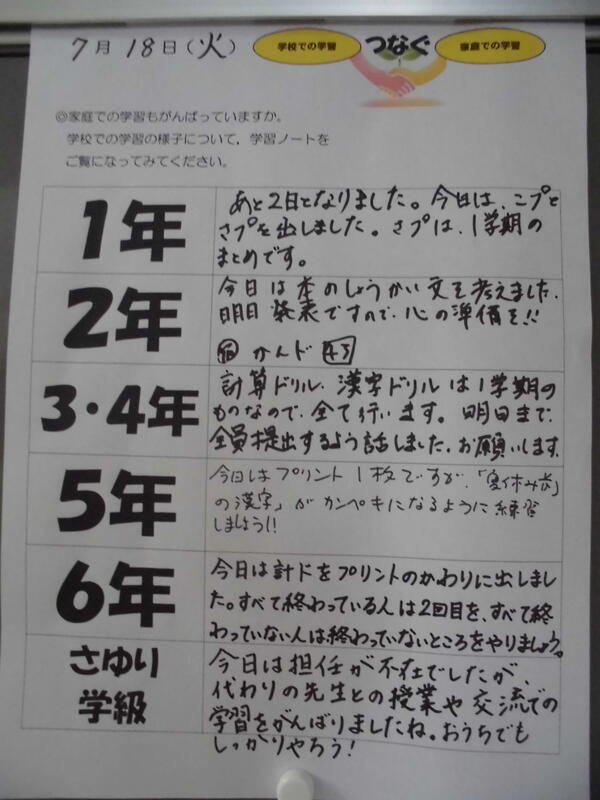 7月 18日(火)
学校での学習 つなぐ 家庭での学習
◎家庭での学習もがんばっていますか。
学校での学習の様子について，学習ノートを
ご覧になってみてください。
1年
あと2日となりました。今日は、こプと
さプを出しました。さプは、1学期の
まとめです。
2年
今日は本のしょうかい文を考えました。
明日発表ですので、心の準備を!!
宿 かんド 43
3・4年
計算ドリル、漢字ドリルは1学期の
ものなので、全て行います。明日まで、
全員提出するよう話しました。お願いします。
5年
今日はプリント1枚ですが、「夏休み
の漢字」がカンペキになるように練習
しましょう!!
6年
今日は計ドをプリントのかわりに出しまし
た。すべて終わっている人は2回目を、すべて終
わっていない人は、終わっていないところをやりましょう。
さゆり
学級
今日は担任が不在でしたが、
代わりの先生との授業や交流での
学習をがんばりましたね。おうちでも
しっかりやろう!